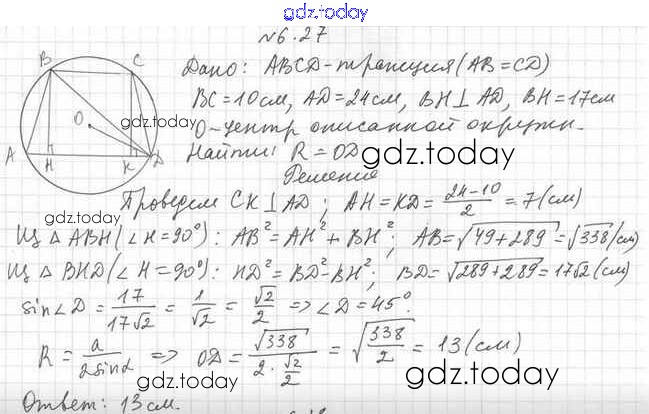 gdz.today
№6.27
B C Дано: ABCD-трапеция (AB=CD)
BC=10см, AD=24см, BH⊥AD, BH=17см
O gdz.today O-центр описанной окружн.
A H K D Найти: R=OD gdz.today
Решение
gdz.today Проведем CK⊥AD; AH=KD=\frac{24-10}{2}=7(см)
Из △ABH(∠H=90°): AB²=AH²+BH²; AB=√(49+289)=√338(см)
Из △BHD(∠H=90°): HD²=BD²-BH²; BD=√(289+289)=17√2(см)
sin∠D=\frac{17}{17√2}=\frac{1}{√2}=\frac{√2}{2} ⇒ ∠D=45°.
R=\frac{a}{2sinα} ⇒ OD=\frac{√338}{2·\frac{√2}{2}}=√\frac{338}{2}=13(см)
gdz.today gdz.today
Ответ: 13см.